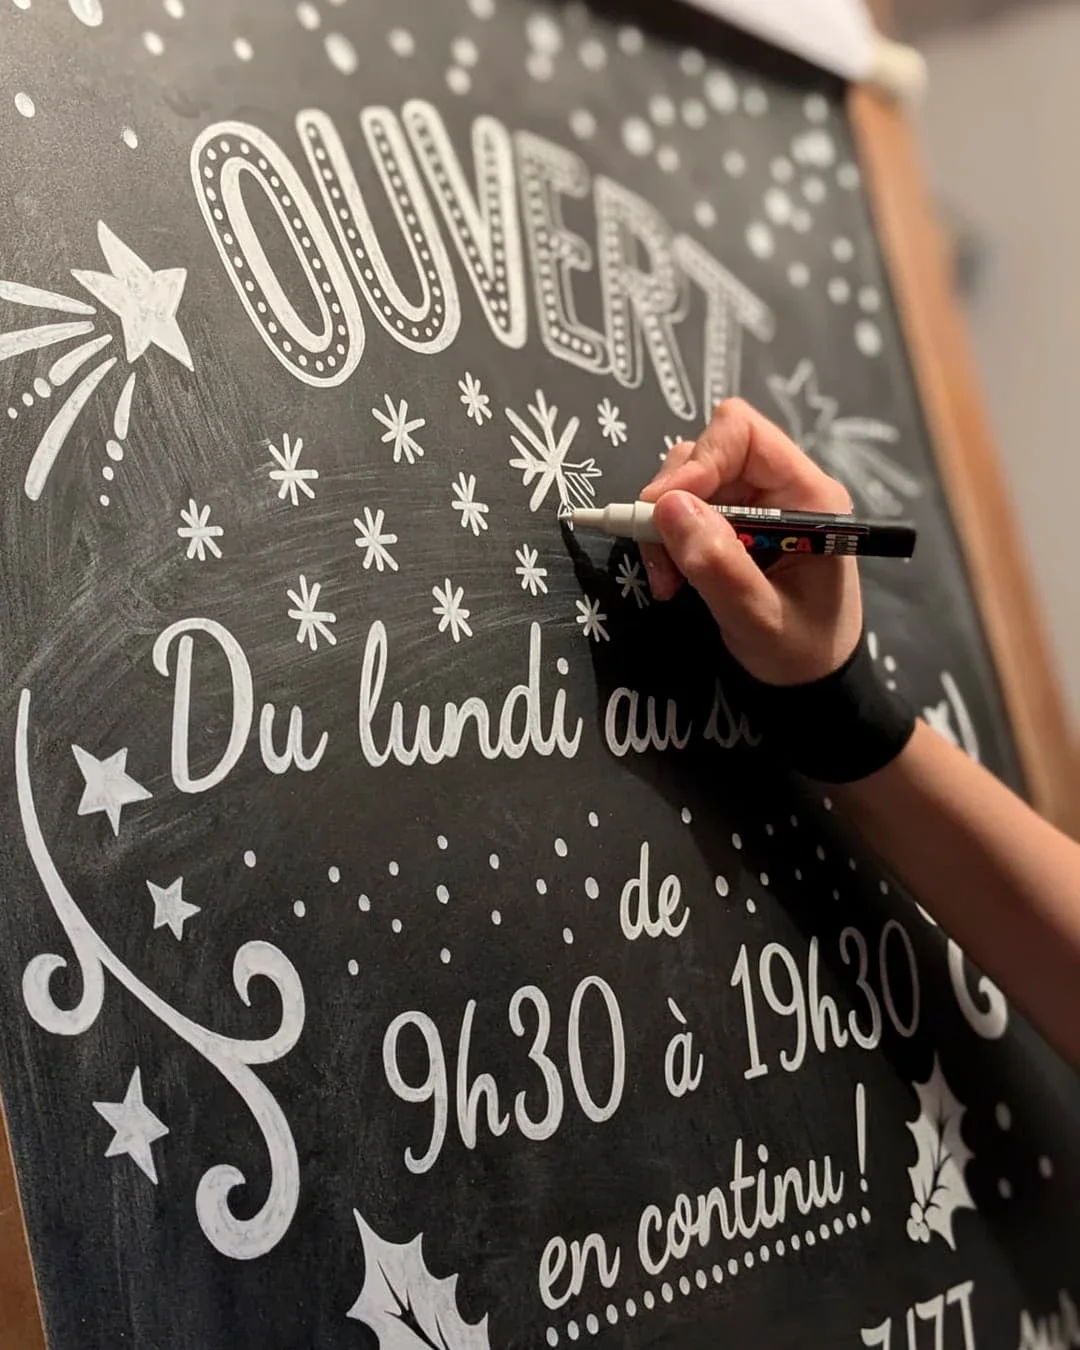 OUVERT
Du lundi au
de
9h30 à 19h30
en continu !
POSCA